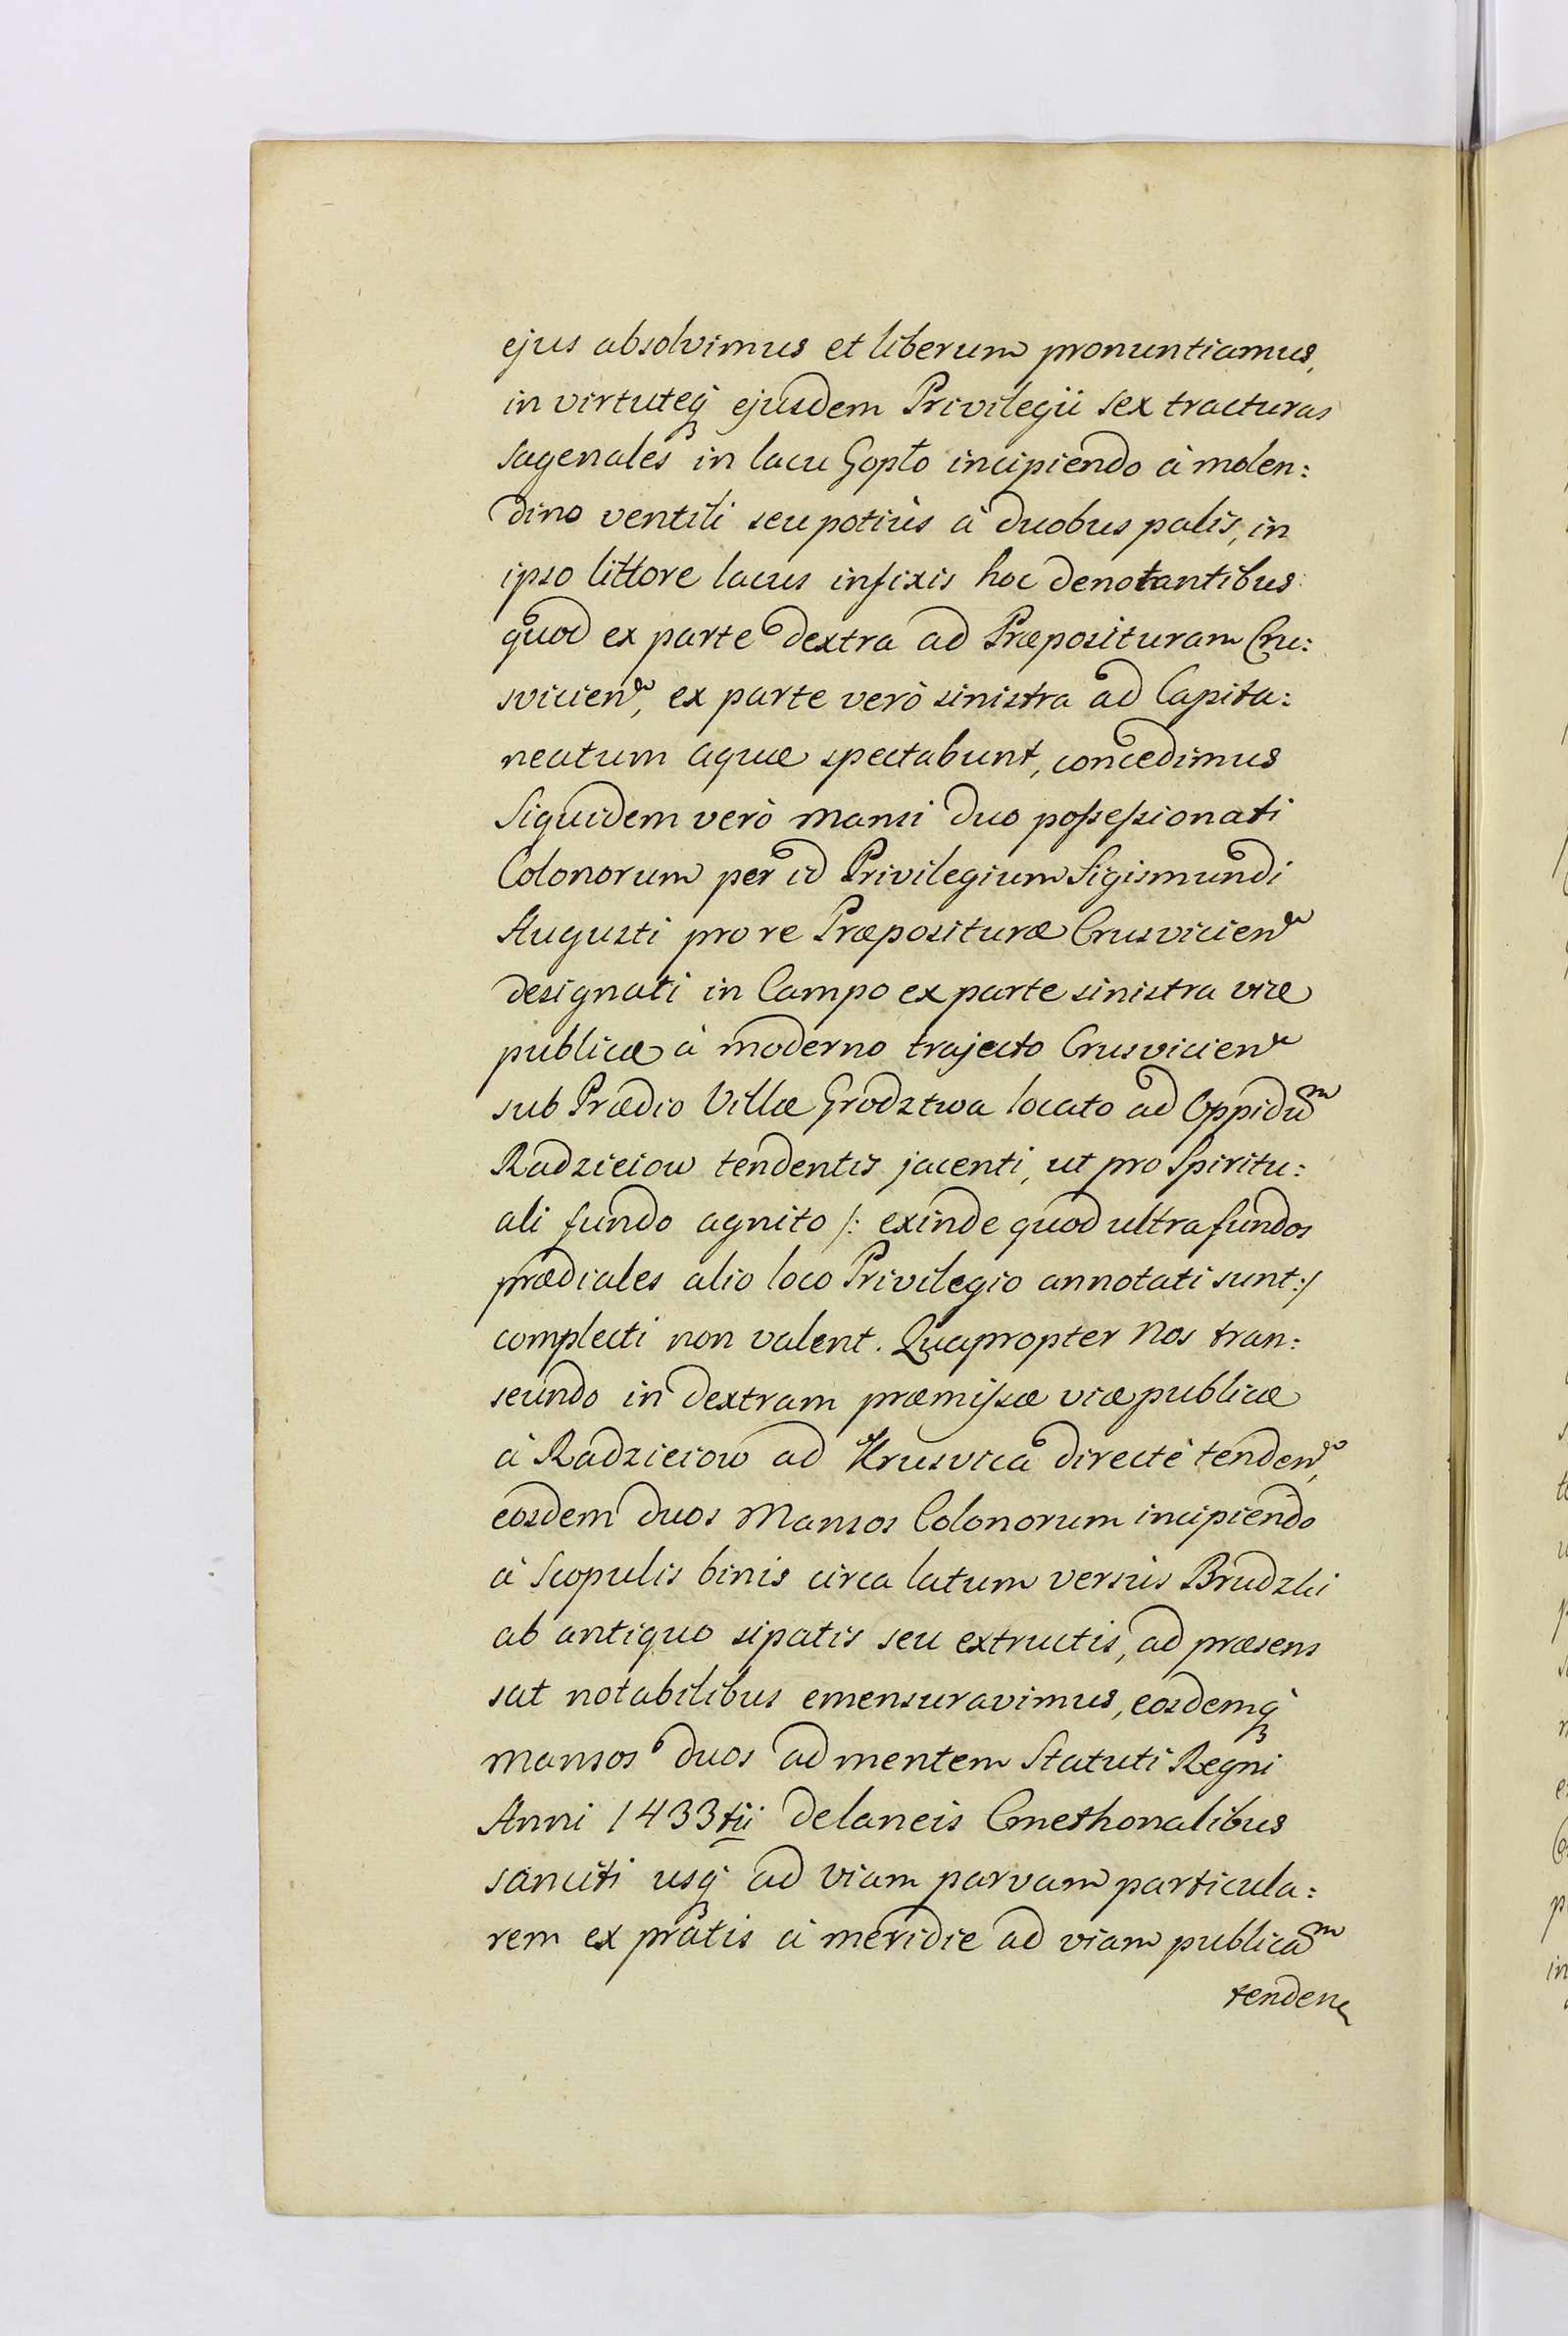 ejus absolvimus et liberum pronuntiamus,
in virtuteq̷ ejusdem Privilegii sex tracturas
sagenales in lacu Gopło incipiendo à molen:
dino ventili seu potiùs à duobus palis, in
ipso littore lacus infixis hoc denotantibus
quod ex parte dextra ad Præposituram Cru:
svicien, ex parte verò sinistra ad Capita:
neatum aquæ spectabunt, concedimus
Siquidem verò mansi duo possessionati
Colonorum per id Privilegium Sigismundi
Augusti pro re Præposituræ Crusvicien
designati in Campo ex parte sinistra viæ
publicæ à moderno trajecto Crusvicien
sub Prædio Villæ Grodztwa locato ad Oppidum
Radzieiow tendentis jacenti, ut pro Spiritu:
ali fundo agnito /: exinde quod ultra fundos
prædiales alio loco Privilegio annotati sunt :/
complecti non valent. Quapropter Nos tran:
seundo in dextram præmissæ viæ publicæ
à Radzieiow ad Krusvicã directè tenden,
eosdem duos Mansos Colonorum incipiendo
à Scopulis binis circa latum versùs Brudzki
ab antiquo sipatis seu extructis, ad præsens
sat notabilibus emensuravimus, eosdemq̷
mansos duos ad mentem Statuti Regni
Anni 1433tii de laneis Cmethonalibus
sanciti usq̷ ad viam parvam particula:
rem ex pratis à meridie ad viam publicam
tenden